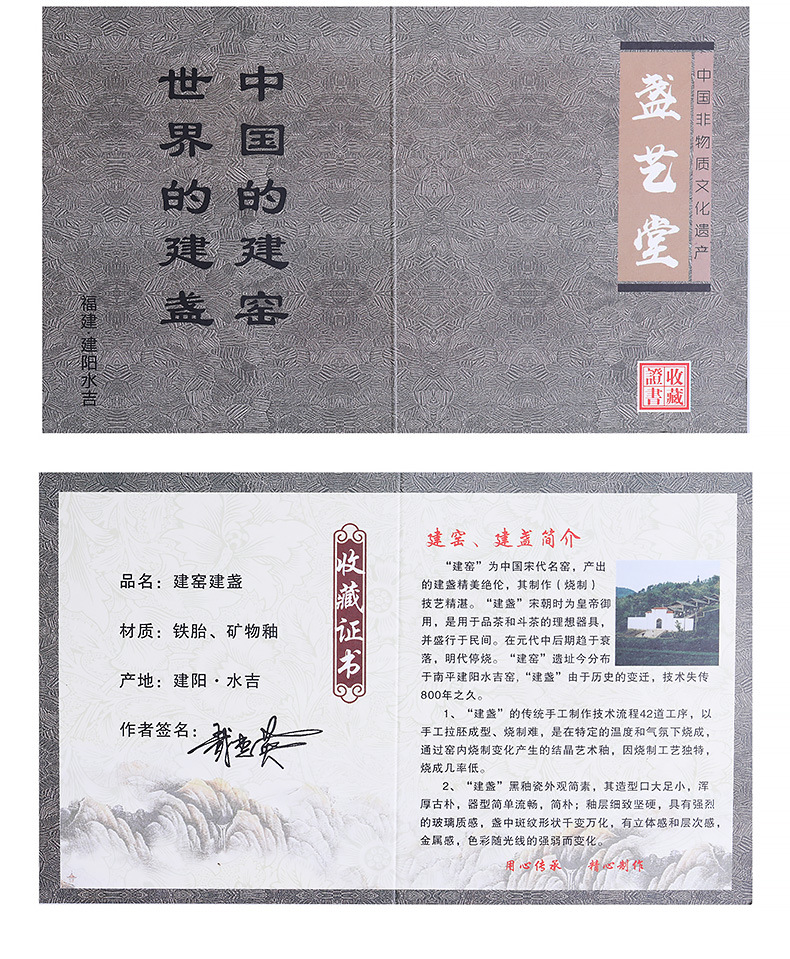 中国的建窑
世界的建盏
福建·建阳水吉
中国非物质文化遗产
盏艺堂
收藏
證書
收藏证书
品名：建窑建盏
材质：铁胎、矿物釉
产地：建阳·水吉
作者签名：
建窑、建盏简介
“建窑”为中国宋代名窑，产出
的建盏精美绝伦，其制作（烧制）
技艺精湛。“建盏”宋朝时为皇帝御
用，是用于品茶和斗茶的理想器具，
并盛行于民间。在元代中后期趋于衰
落，明代停烧。“建窑”遗址今分布
于南平建阳水吉窑，“建盏”由于历史的变迁，技术失传
800年之久。
1、“建盏”的传统手工制作技术流程42道工序，以
手工拉胚成型、烧制难，是在特定的温度和气氛下烧成，
通过窑内烧制变化产生的结晶艺术釉，因烧制工艺独特，
烧成几率低。
2、“建盏”黑釉瓷外观简素，其造型口大足小，浑
厚古朴，器型简单流畅，简朴；釉层细致坚硬，具有强烈
的玻璃质感，盏中斑纹形状千变万化，有立体感和层次感，
金属感，色彩随光线的强弱而变化。
用心传承 精心制作